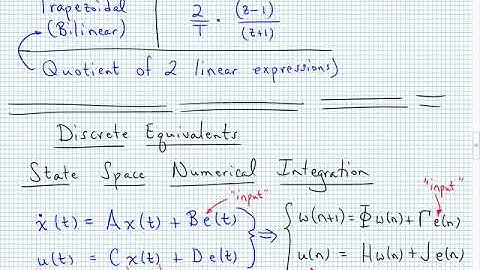 Trapezoidal
(Bilinear)
2/T · (z-1)/(z+1)
Quotient of 2 linear expressions)
Discrete Equivalents
State Space Numerical Integration
"input" "input"
ẋ(t) = Ax(t) + Be(t) ⇒ { ω(n+1) = Φω(n) + Γe(n)
u(t) = Cx(t) + De(t) u(n) = Hω(n) + Je(n)